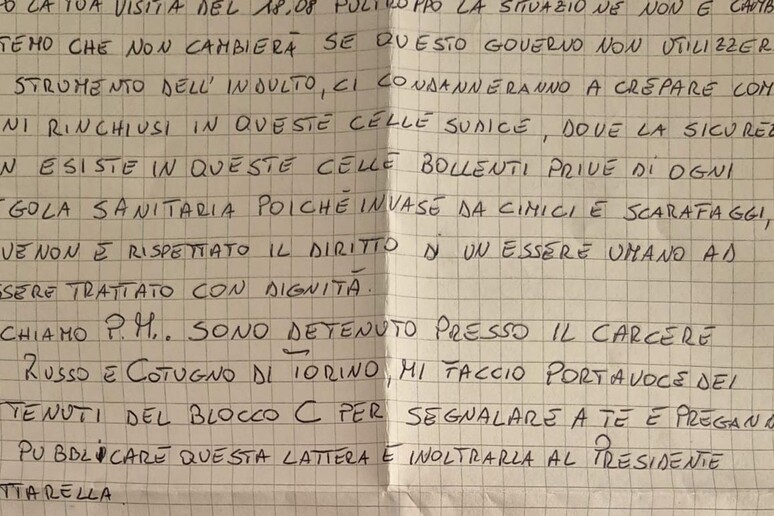 O LA TUA VISITA DEL 18.08 PURTROPPO LA SITUAZIONE NON È CAMB
TEMO CHE NON CAMBIERÀ SE QUESTO GOVERNO NON UTILIZZER
STRUMENTO DELL'INDULTO, CI CONDANNERANNO A CREPARE COM
NI RINCHIUSI IN QUESTE CELLE SUDICE, DOVE LA SICUREZ
N ESISTE IN QUESTE CELLE BOLLENTI PRIVE DI OGNI
GOLA SANITARIA POICHÉ INVASE DA CIMICI E SCARAFAGGI,
VE NON È RISPETTATO IL DIRITTO DI UN ESSERE UMANO AD
SERE TRATTATO CON DIGNITÀ.
CHIAMO P.M.. SONO DETENUTO PRESSO IL CARCERE
RUSSO E COTUGNO DI TORINO, MI FACCIO PORTAVOCE DEI
TENUTI DEL BLOCCO C PER SEGNALARE A TE E PREGAN
PUBBLICARE QUESTA LATTERA E INOLTRARLA AL PRESIDENTE
TTARELLA